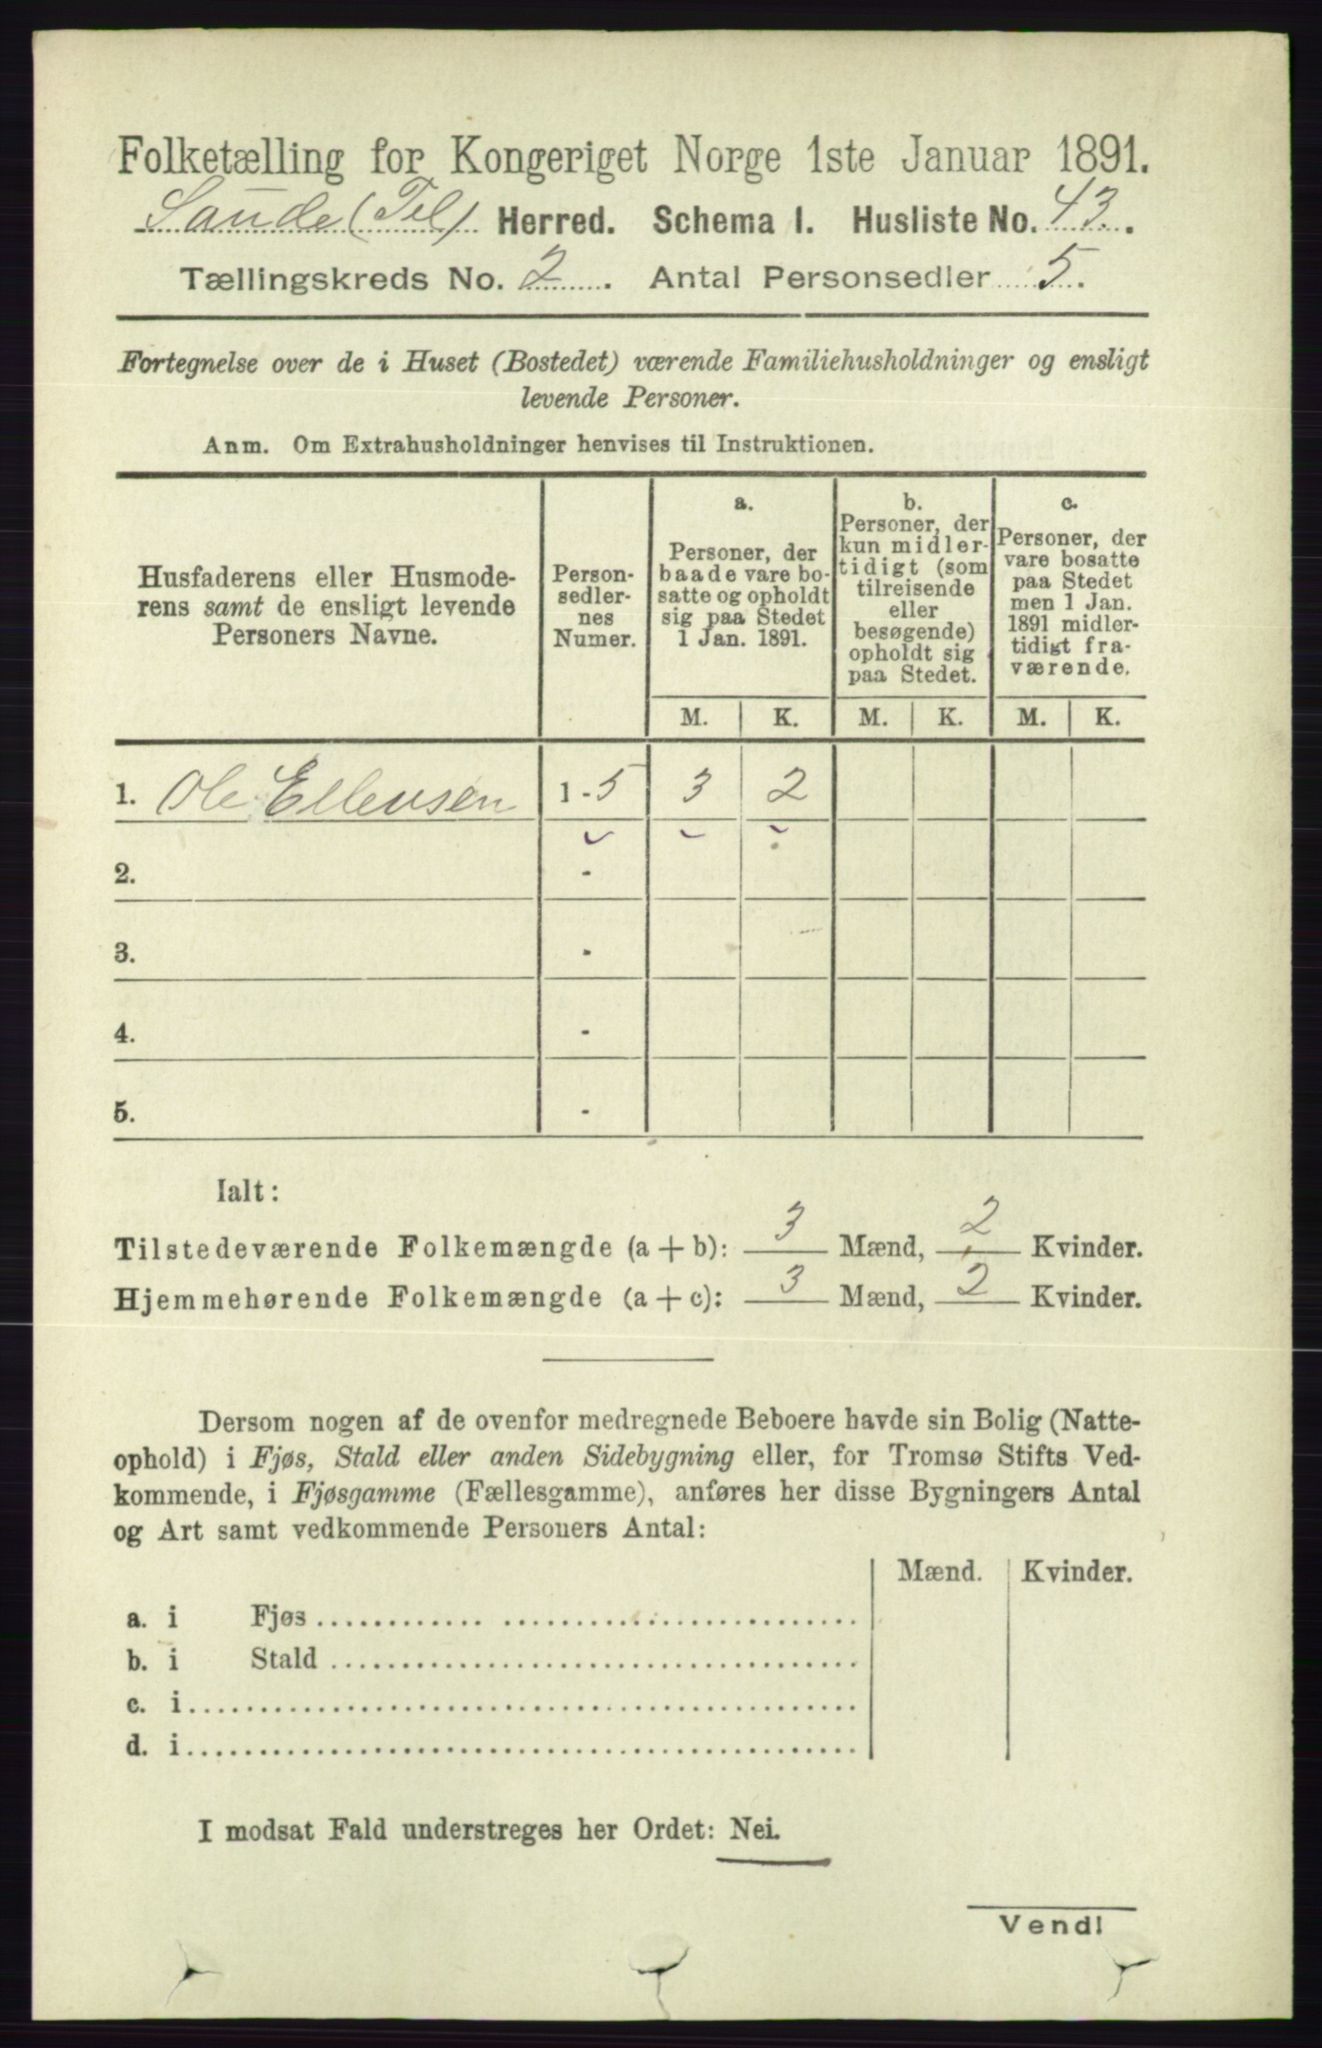 Folketælling for Kongeriget Norge 1ste Januar 1891.
Saude (Tel) Herred. Schema I. Husliste No. 43.
Tællingskreds No. 2. Antal Personsedler 5.
Fortegnelse over de i Huset (Bostedet) værende Familiehusholdninger og ensligt
levende Personer.
Anm. Om Extrahusholdninger henvises til Instruktionen.
Husfaderens eller Husmode-
rens samt de ensligt levende
Personers Navne.
Person-
sedler-
nes
Numer.
a.
Personer, der
baade vare bo-
satte og opholdt
sig paa Stedet
1 Jan. 1891.
b.
Personer, der
kun midler-
tidigt (som
tilreisende
eller
besøgende)
opholdt sig
paa Stedet.
c.
Personer, der
vare bosatte
paa Stedet
men 1 Jan.
1891 midler-
tidigt fra-
værende.
M. K. M. K. M. K.
1. Ole Ellevsen 1 - 5 3 2
2. -
3. -
4. -
5. -
Ialt:
Tilstedeværende Folkemængde (a + b): 3 Mænd, 2 Kvinder.
Hjemmehørende Folkemængde (a + c): 3 Mænd, 2 Kvinder.
Dersom nogen af de ovenfor medregnede Beboere havde sin Bolig (Natte-
ophold) i Fjøs, Stald eller anden Sidebygning eller, for Tromsø Stifts Ved-
kommende, i Fjøsgamme (Fællesgamme), anføres her disse Bygningers Antal
og Art samt vedkommende Personers Antal:
Mænd. Kvinder.
a. i Fjøs
b. i Stald
c. i
d. i
I modsat Fald understreges her Ordet: Nei.
Vend!